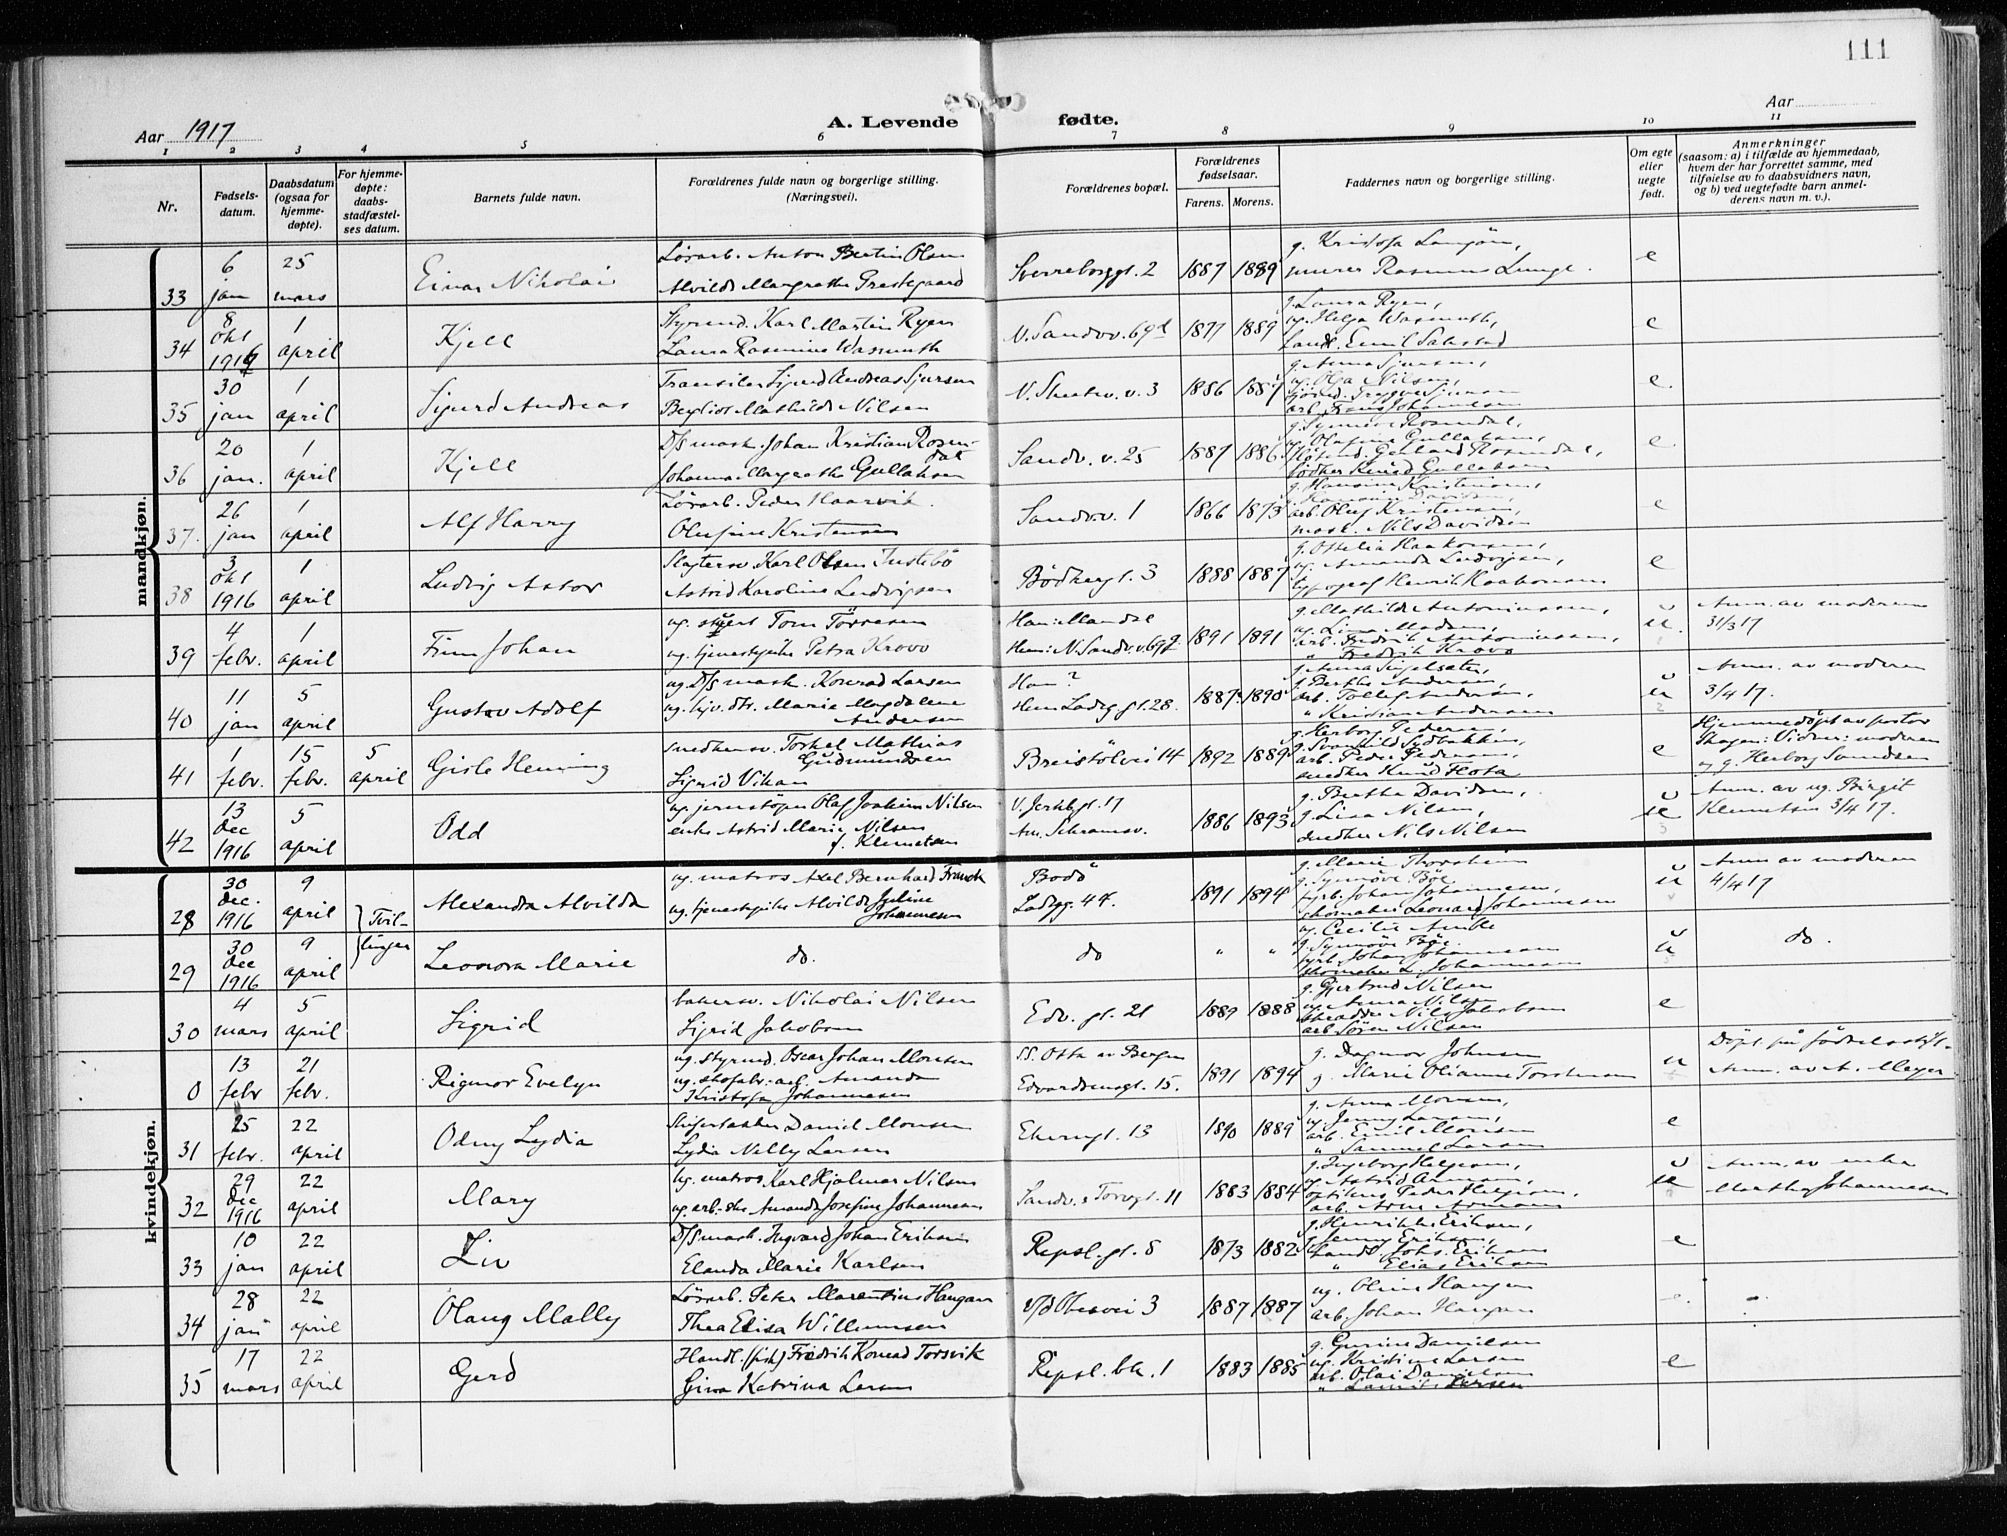 111
Aar 1917
A. Levende fødte.
Aar
1 2 3 4 5 6 7 8 9 10 11
Nr.
Fødsels-
datum.
Daabsdatum
(ogsaa for
hjemme-
døpte).
For hjemme-
døpte:
daabs-
stadfæstel-
ses datum.
Barnets fulde navn.
Forældrenes fulde navn og borgerlige stilling.
(Næringsvei).
Forældrenes bopæl.
Forældrenes
fødselsaar.
Farens. Morens.
Faddernes navn og borgerlige stilling.
Om egte
eller
uegte
født.
Anmerkninger
(saasom: a) i tilfælde av hjemmedaab,
hvem der har forrettet samme, med
tilføielse av to daabsvidners navn,
og b) ved uegtefødte barn anmel-
derens navn m. v.).
mandkjøn.
33
6
jan
25
mars
Einar Nikolai
Lösarb. Anton Bertin Olsen
Alvilde Margrethe
Sverreborggt. 2
1887 1889
murer Rasmus Lunge.
e
34
8
okt
1916
1
april
Kjell
Styrmd. Karl Martin Ryen
Laura Rasmine Wasmuth
V. Sandv.v. 69
1877 1889
g. Laura Ryen,
ug. Helga Wasmuth,
e
35
30
jan
1
april
Sigurd Andreas
Sigurd Andreas Sjursen
Mathilde Nilsen
3
1886 1887
g. Anna Sjursen,
ug. Olga Nilsen,
arb. Frans Johannesen
e
36
20
jan.
1
april
Kjell
D/S mask. Johan Kristian Rosen-
dal
Johanne Margrethe Gullaksen
Sandv. v. 25
1887 1886
g. Synnöve Rosendal,
ug. Olufine Gullaksen,
bödker Knud Gullaksen
e
37.
26
jan
1
april
Alf Harry
Lösarb. Peder Haarvik.
Olufine Kristensen
Sandv.v. 1
1866 1873
g. Hansine Kristensen,
arb. Oluf Kristensen,
mask. Nils Davidsen
e
38
3
okt
1916
1
april
Ludvig Astor
Slagtersv. Karl Olsen Justebö
Astrid Karoline Ludvigsen
Bödkergt. 3
1888 1887
g. Ottelia Haakonsen,
ug. Amanda Ludvigsen,
typograf Henrik Haakonsen
e
39
4
febr.
1
april
Finn Johan
ug. stuert Tom Törresen
ug. tjenestepike Petra Krovo
Han: Mandal
Hun: N. Sandv. v. 69
1891 1891
g. Mathilde Antoniussen,
ug. Lina Madsen,
arb. Fredrik Antoniussen,
" Fredrik Krovo
u.
Anm. av moderen
31/3 17
40
11
jan
5
april
Gustav Adolf
ug. D/S mask. Konrad Larsen
ug. hjv. dtr. Marie Magdalene
Andersen
Han?
Hun Ladeg. gt. 28.
1887. 1890
g. Berthe Andersen,
arb. Tollef Andersen,
" Kristian Andersen
u
Anm. av moderen
3/4 17.
41
1
febr.
15
febr.
5
april
Gisle Henning
snedkersv. Torkel Mathias
Gudmundsen
Sigrid Vikan
Breistölvei 14
1892 1889
g. Herborg Pedersen,
arb. Peder Pedersen,
snedker Knud Hosa
e
Hjemmedöpt av pastor
Skagen: Vidner: moderen
og g. Herborg Samdsen
42
13
dec
1916
5
april
Odd
ug. jernstöper Olaf Joakim Nilsen
enke Astrid Marie Nilsen
f. Klemetsen
V. Jerkbgt. 17
1886 1893
g. Berthe Davidsen,
g. Lina Nilsen,
snedker Nils Nilsen
u
Anm. av ug. Birgit
Klemetsen 3/4 17.
kvindekjøn.
28
30
dec.
1916
9
april
Tvil-
linger
Alexandra Alvilda
ug. matros Axel Bernhard Franck
ug. tjenestepike Alvilde Juline
Johannesen
Bodö
Ladgg. 44.
1891 1894
g. Marie Thorsheim
g. Synnöve Böe
fyrb. Johan Johannesen,
skomaker Leonard Johannesen
u
Anm av moderen
4/4 17
29
30
dec
1916
9
april
Leonora Marie
do.
do
" "
ug. Cecilie
g. Synnöve Böe.
fyrb. Johan Johannesen
skomaker L. Johannesen
u
do.
30
4
mars
5
april
Sigrid
bakersv. Nikolai Nilsen
Sigrid Jakobsen
Edv. gt. 21
1889 1888
g. Gjertrud Nilsen
ug. Anna Nilsen
Nils Jakobsen
arb. Sören Nilsen
e
0
13
febr
21
febr.
Rigmor Evelyn
ug. styrmd. Oscar Johan Monsen
ug. skofabr.-arb. Amanda
Kristofa Johannesen
S.S. Otta av Bergen
Edvardsensgt. 15.
1891 1894
g. Dagmor Johnsen
g. Marie Olianne Torstensen
u
Döpt på födselsstift.
Anm. av A. Meyer
31
25
febr.
22
april
Odny Lydia
David Monsen
Lydia Nelly Larsen
Ekerngt. 13
1890 1889
g. Anna Monsen,
ug. Jenny Larsen,
arb. Emil Monsen
" Samuel Larsen
e
32
29
dec
1916
22
april
Mary
ug. matros Karl Hjalmar Nilsen
ug. arb.-ske Amanda Josefine Johannesen
Sandv.s Torvgt. 11
1883 1884
g. Ingeborg Helgesen,
ug. Astrid Armann,
Peder Helgesen,
arb. Arne Armann
u
Anm. av enke
Marthe Johannesen
33
10
jan
22
april
Liv
D/S mask. Ingvard Johan Eriksen
Elanda Marie Karlsen
Repsl. gt. 8
1873 1882
g. Henrikke Eriksen,
g. Jenny Eriksen,
handl. Johs. Eriksen
" Elias Eriksen
e
34
28
jan
22
april
Olaug Mally
Lösarb. Peter Marentius Haugan
Thea Elisa Willumsen
3
1887 1887
ug. Oline Haugen
arb. Johan Haugan
e.
35
17
mars
22
april
Gerd
Handl. (fisk) Fredrik Konrad Torsvik
Gina Katrina Larsen
Repsl. bk. 1
1883 1885
g. Gurine Danielsen
ug. Kristine Larsen
arb. Olai Danielsen
" Larsen
e